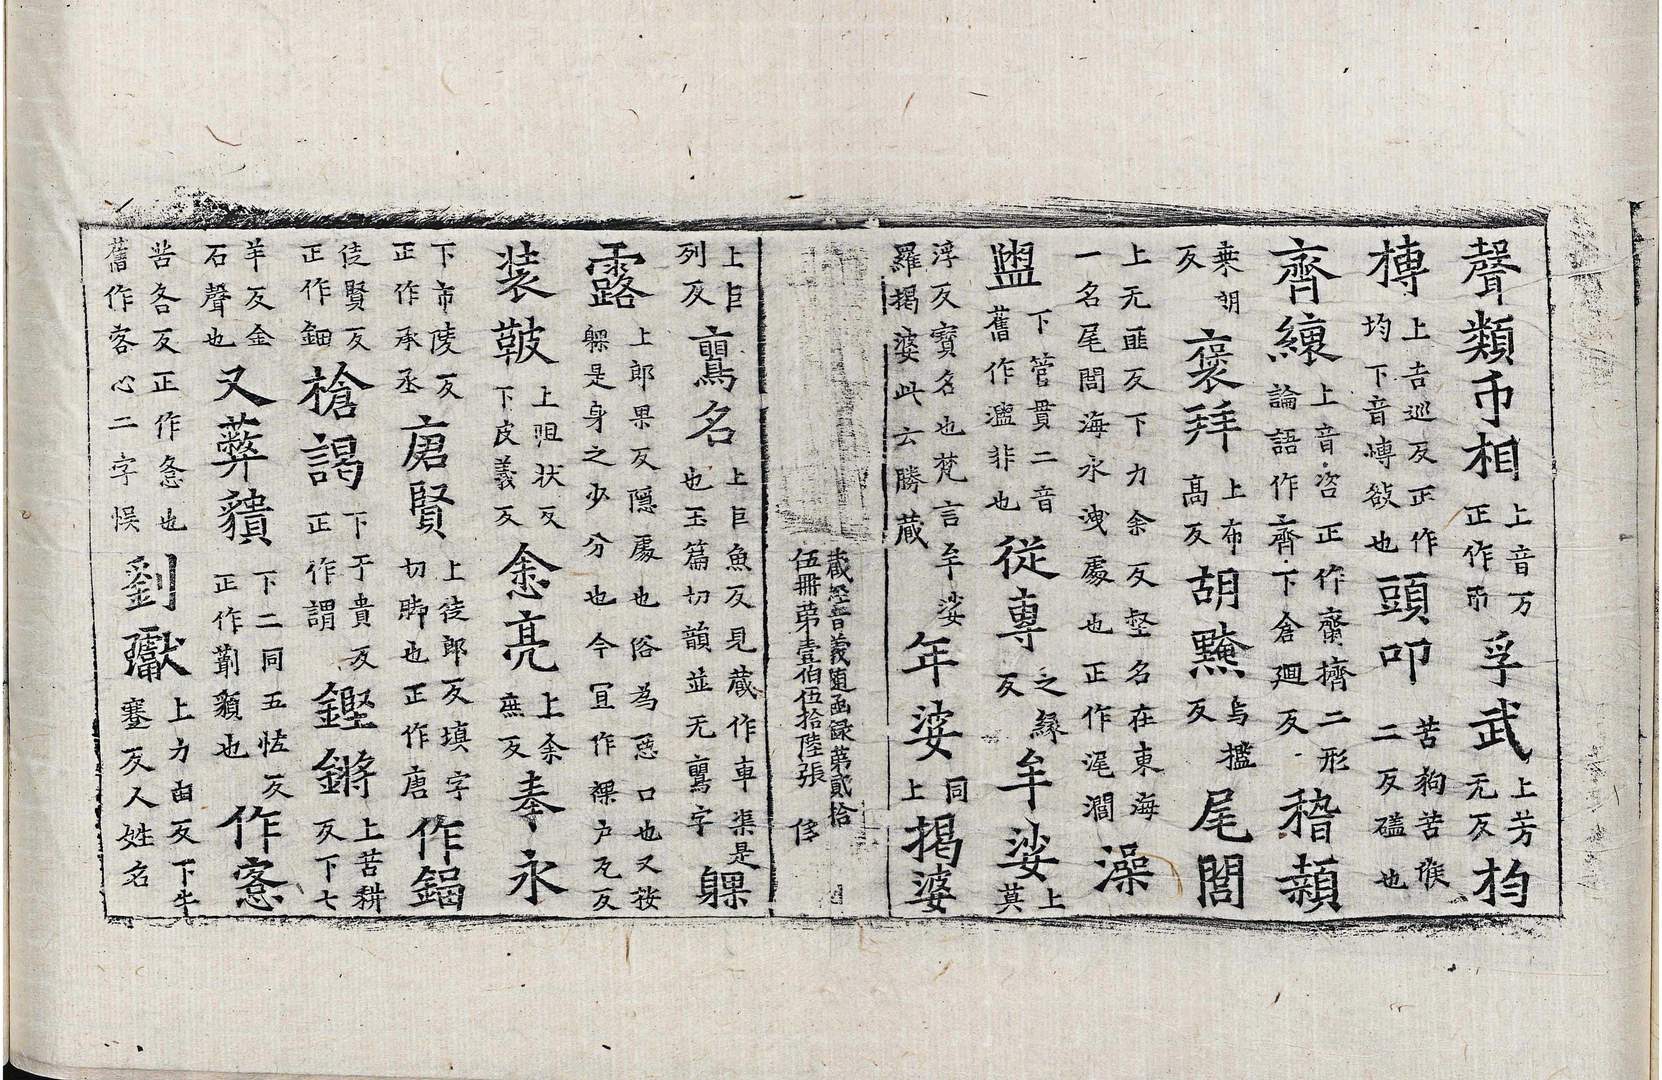 聲類帀相上音万正作帀孚武上芳无反枃
槫上吉巡反正作均下音慱敍也頭叩苦狗苦堠二反礚也
齊縗上音咨正作齋擠二形論語作齊下倉廻反稽顙
桒朗反褒拜上布高反胡黤烏檻反尾閭
上无匪反下力余反壑名在東海一名尾閭海水洩處也正作浘澗澡
盥下管貫二音舊作灆非也從專之縁反牟娑上莫
浮反寳名也梵言牟娑羅揭婆此云勝蔵年娑同上揭婆
蔵經音義随函録第貳拾伍冊苐壹伯伍拾陸張 侈
上巨列反鸎名上巨魚反見蔵作車渠是也玉篇切韻並无鸎字躶
露上郎果反隱處也俗為惡口也又按躶是身之少分也今冝作裸户瓦反
裝鞁上阻状反下皮義反悆亮上余庶反奉永
下市陵反正作承丞磄賢上徒郎反填字切脚也正作唐作錮
徒賢反正作鈿槍謁下于貴反正作謂鏗鏘上苦耕反下七
羊反金石聲也又蔡䝿下二同五恠反正作䓶顡也作愙
苦各反正作㤩也舊作客心二字悮劉瓛上力由反下牛蹇反人姓名